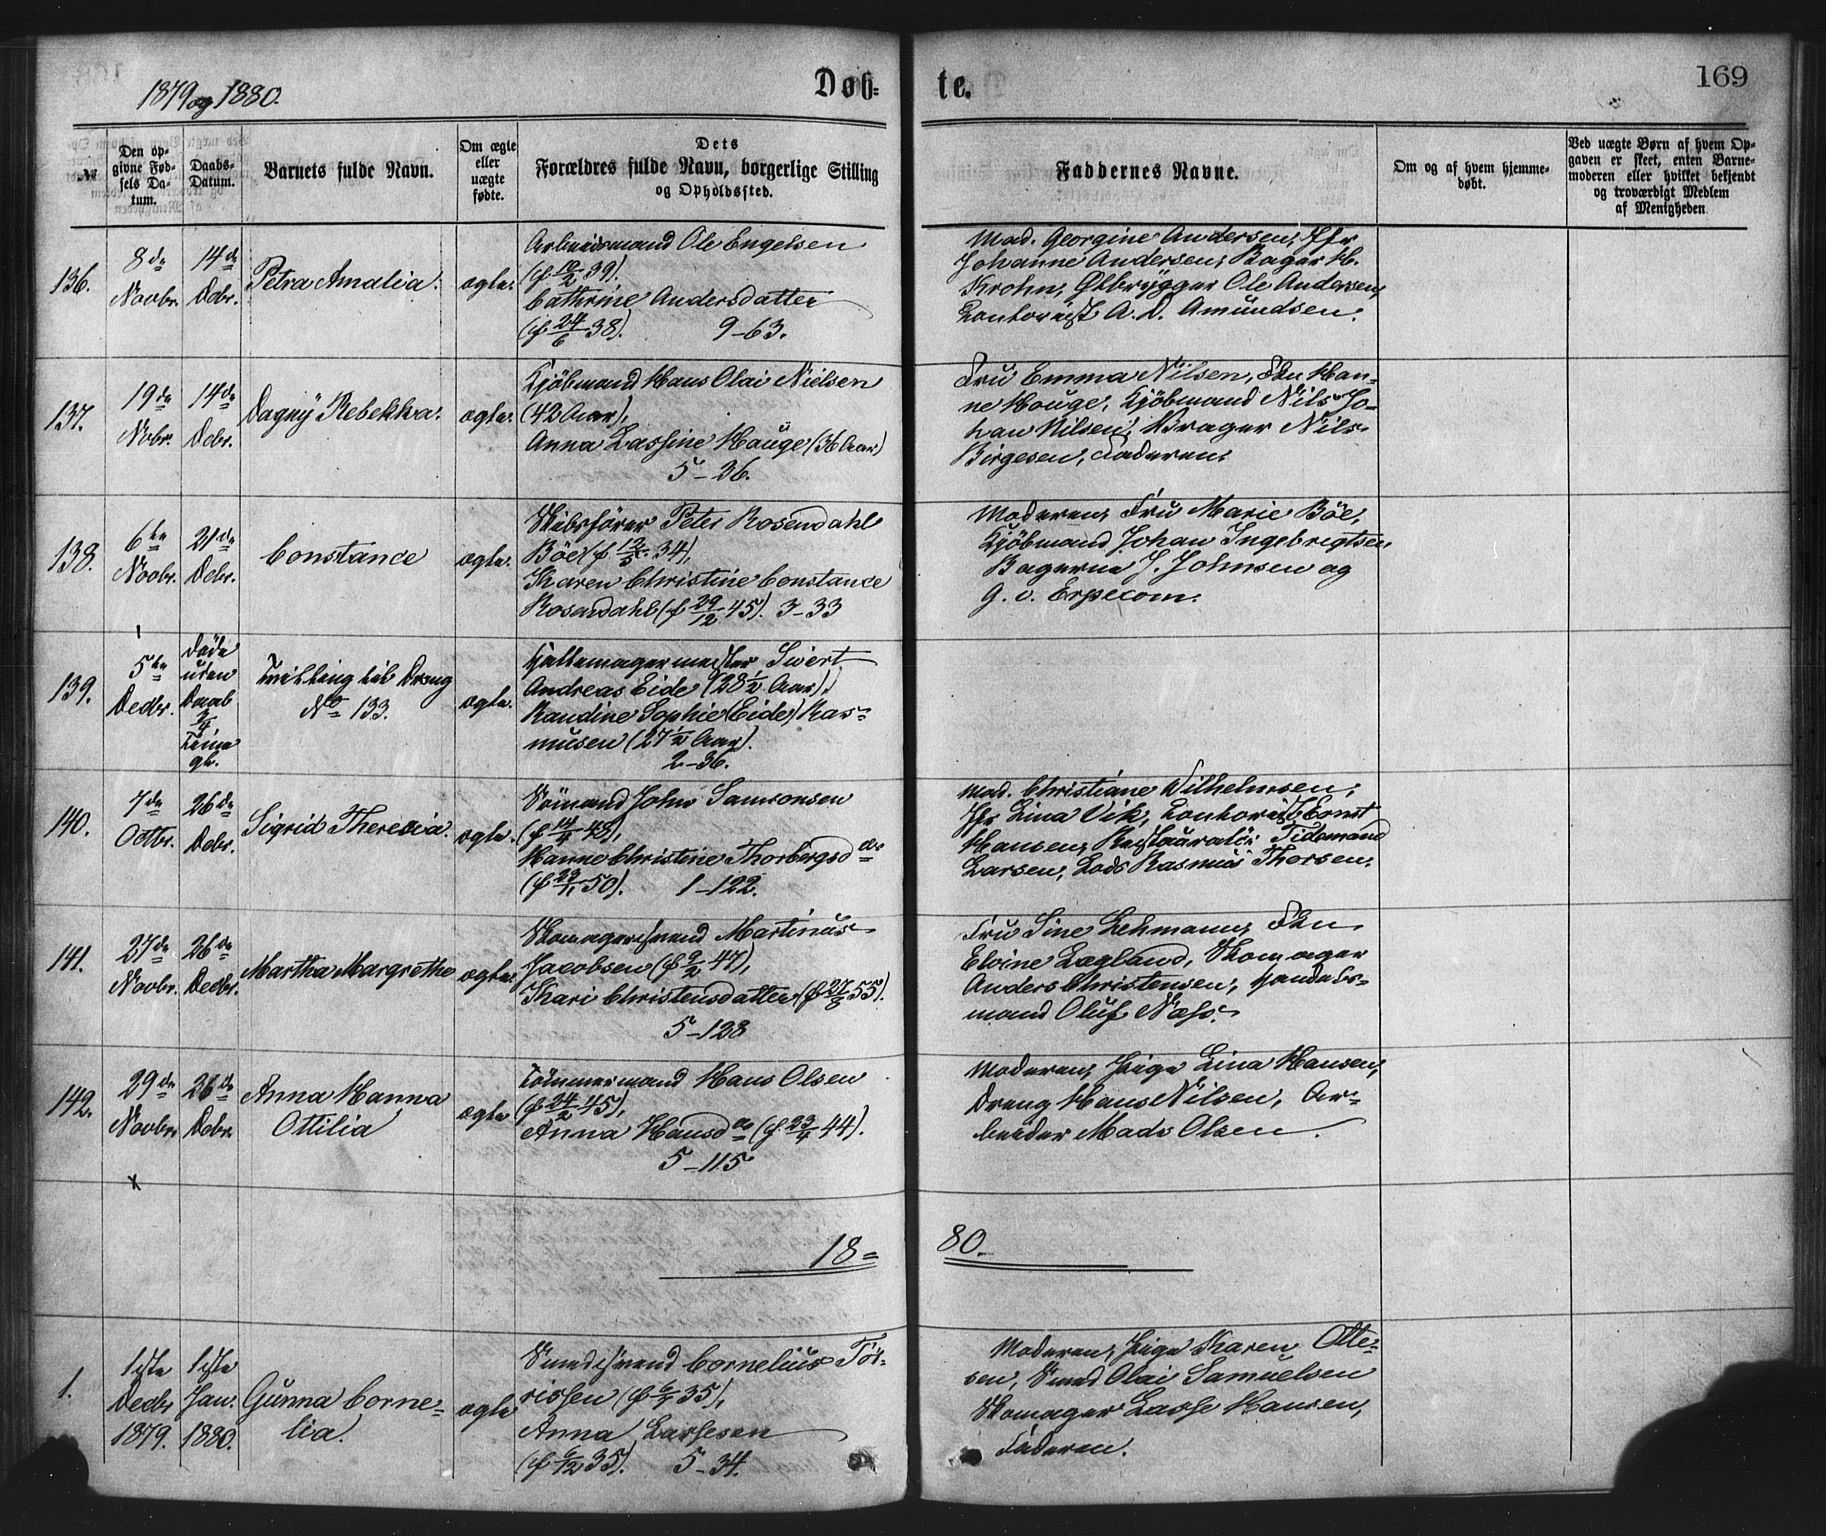 1879 og 1880.
Døb-
te.
169
№
Den op-
givne Fød-
sels Da-
tum.
Daabs-
Datum.
Barnets fulde Navn.
Om ægte
eller
uægte
fødte.
Dets
Forældres fulde Navn, borgerlige Stilling
og Opholdssted.
Faddernes Navne.
Om og af hvem hjemme-
døbt.
Ved uægte Børn af hvem Op-
gaven er skeet, enten Barne-
moderen eller hvilket bekjendt
og troværdigt Medlem
af Menigheden.
136.
8de
Novbr.
14de
Debr.
Petra Amalia.
ægte.
Arbeidsmand Ole Engelsen
(f 10/2 39).
Cathrine Andersdatter
(f 24/6 38). 9-63.
Mad. Georgine Andersen, Jfr
Johanne Andersen, Bager H.
Krohn, Ølbrygger Ole Andersen,
Contorist A. D. Amundsen.
137.
19de
Nobr.
14de
Debr.
Dagny Rebekka.
ægte.
Kjøbmand Hans Olai Nielsen
(42 Aar),
Anna Lassine Hauge (36 Aar)
5-26.
Fru Emma Nilsen, Frkn Han-
ne Houge, Kjøbmand Nils Jo-
han Nilsen, Vrager Nils
Birgesen, Faderen.
138.
6te
Novbr.
21de
Debr.
Constance
ægte.
Skibsfører Peter Rosendahl
Böe (f 12/5 34),
Karen Christine Constance
Rosendahl (f 29/12 45). 3-33
Moderen, Fru Marie Böe,
Kjøbmand Johan Ingebrigtsen,
Bagerne J. Johnsen og
G. v. Erpecom.
139.
5te
Decbr.
döde
uden
Daab
3/4
Time
gl.
Tvilling til Dreng
No 133.
ægte.
Hattemagermester Sivert
Andreas Eide (28 1/2 Aar),
Randine Sophie (Eide) Ras-
musen (27 1/2 Aar).
2-36.
140.
7de
Octbr.
26de
Debr.
Sigrid Theresia.
ægte.
Sömand John Samsonsen
(f 14/4 48),
Hanne Christine Thorbergsdtr
(f 23/11 50). 1-122.
Mad. Christiane Wilhelmsen,
Jfr Lina Vik, Contorist Ernst
Hansen, Restauratör Tidemand
Larsen, Lods Rasmus Thorsen.
141.
27de
Novbr.
26de
Decbr.
Martha Margrethe
ægte.
Skomagersvend Martinus
Jacobsen (f 9/2 47),
Kari Christensdatter (f 27/8 55).
5-128
Fru Sine Lehmann, Frkn
Elvine Lagland, Skomager
Anders Christensen, Handels-
mand Oluf Næss.
142.
29de
Novbr.
26de
Debr.
Anna Hanna
Ottilia
ægte
Tömmermand Hans Olsen
(f 24/2 45),
Anna Hansdtr (f 23/4 44).
5-115
Moderen, Pige Lina Hansen,
Dreng Hans Nilsen, Ar-
beider Mads Olsen.
x
18=
80.
1.
1ste
Decbr
1879.
1ste
Jan.
1880.
Gunna Corne-
lia.
ægte
Smedesvend Cornelius Tör-
rissen (f 6/7 35),
Anna Larssen
(f 6/12 35). 5-34.
Moderen, Pige Karen Otte-
sen, Smed Olai Samuelsen
Skomager Lasse Hansen,
Faderen.